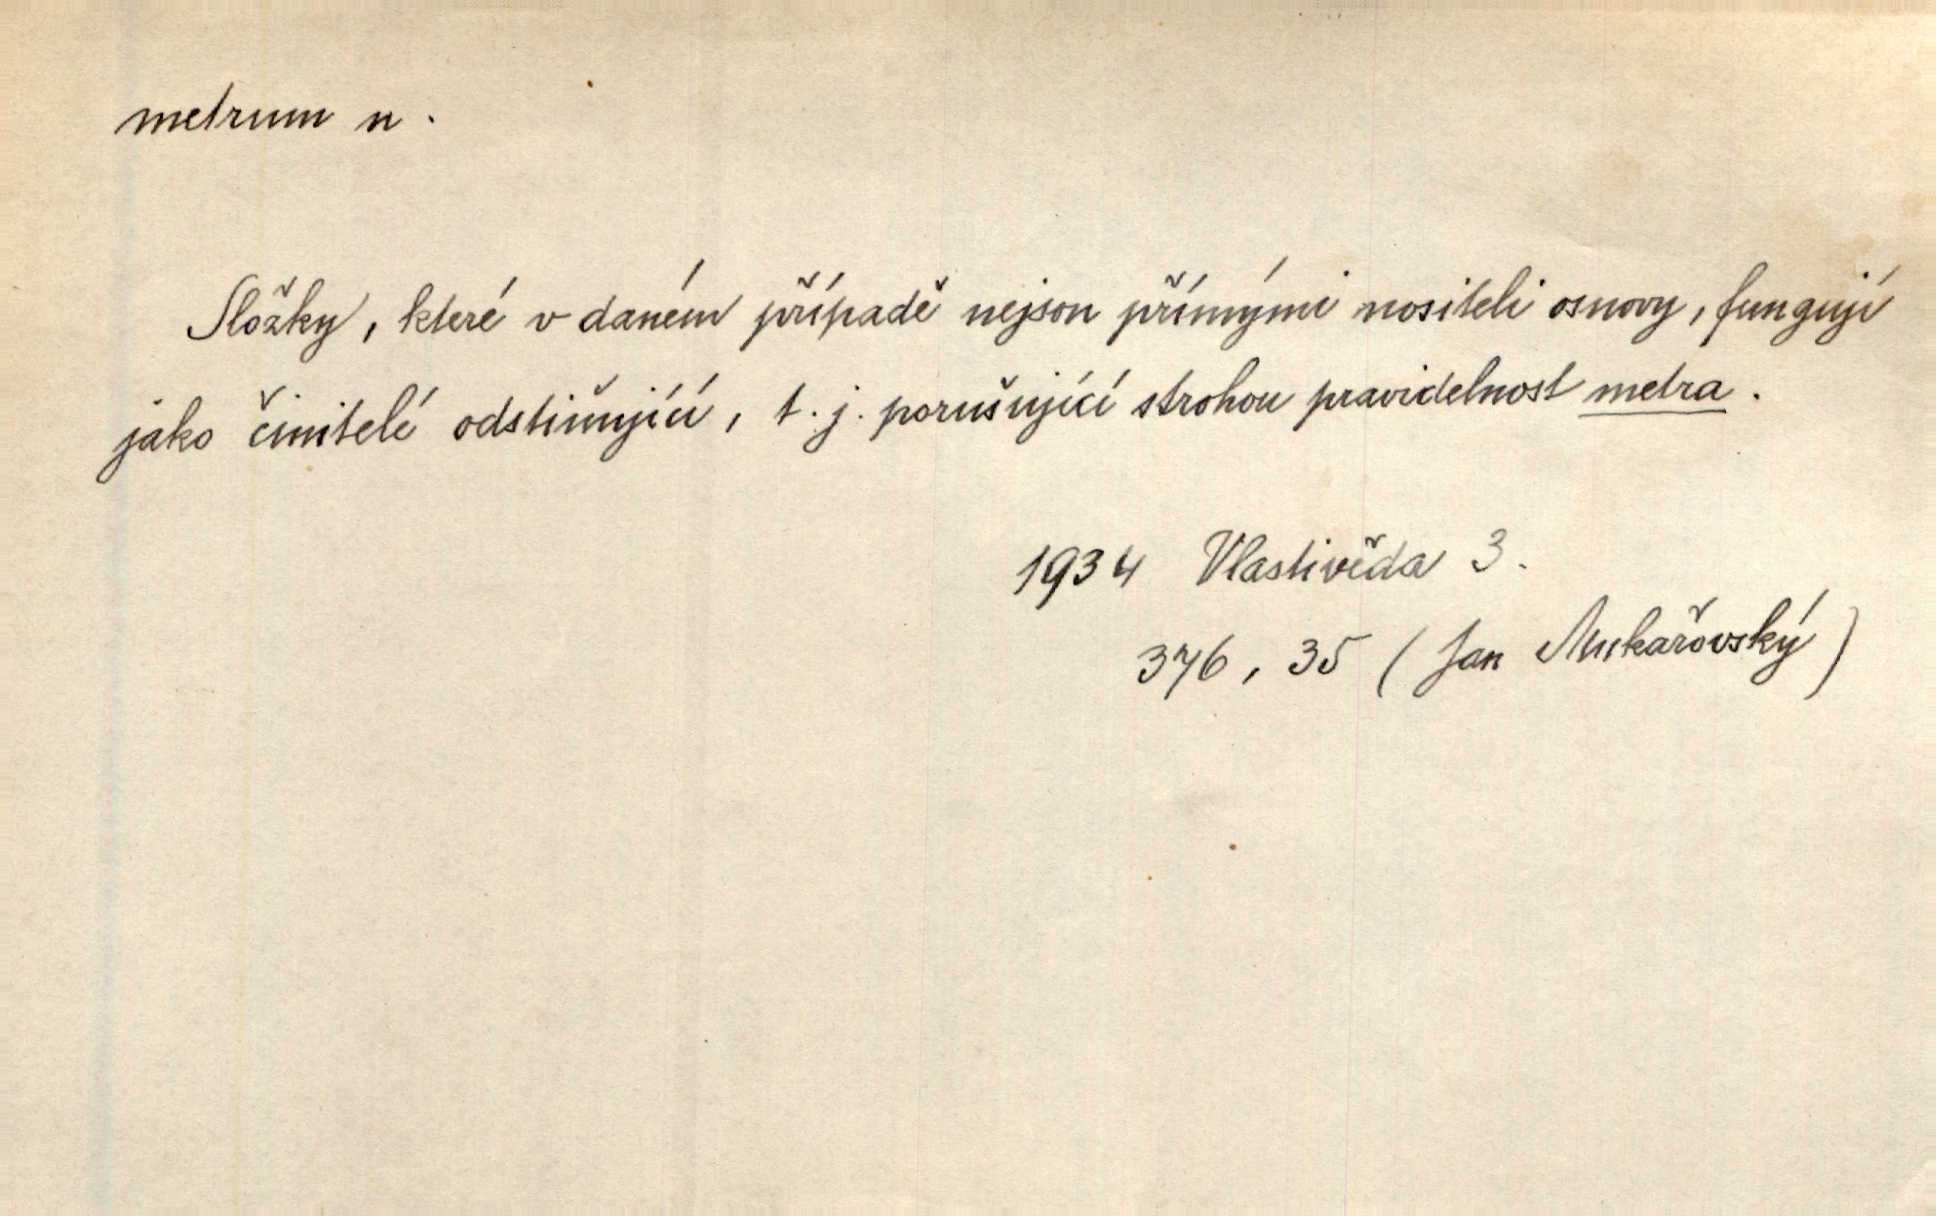 metrum n.
Složky, které v daném případě nejsou přímými nositeli osnovy, fungují
jako činitelé odstiňující, t. j. porušující strohou pravidelnost metra.
1934 Vlastivěda 3.
376, 35 (Jan Mukařovský)